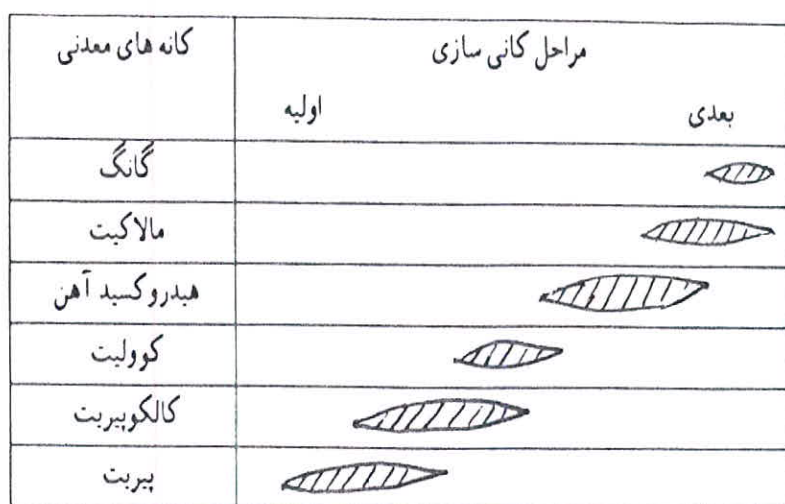 کانه های معدنی
مراحل کانی سازی
اولیه
بعدی
گانگ
مالاکیت
هیدروکسید آهن
کوولیت
کالکوپیریت
پیریت